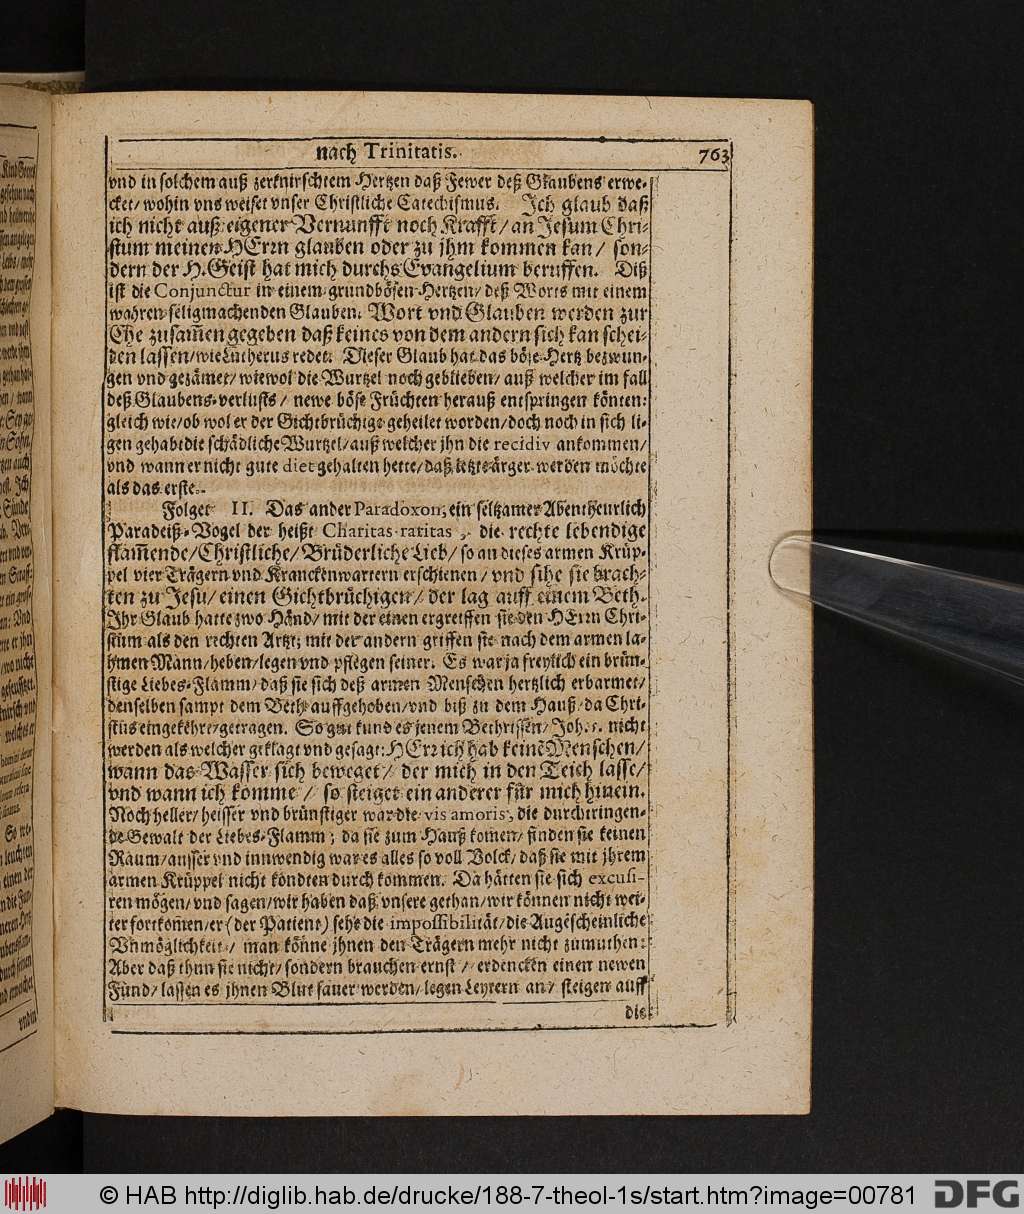 nach Trinitatis. 763
vnd in solchem auß zerknirschtem Hertzen daß Fewer deß Glaubens erwe-
cket/ wohin vns weiset vnser Christliche Catechismus. Ich glaub daß
ich nicht auß eigener Vernunfft noch Krafft/ an Jesum Chri-
stum meinen HErrn glauben oder zu jhm kommen kan/ son-
dern der H. Geist hat mich durchs Evangelium beruffen. Diß
ist die Conjunctur in einem grundbösen Hertzen/ deß Worts mit einem
wahren seligmachenden Glauben. Wort vnd Glauben werden zur
Ehe zusam̃en gegeben daß keines von dem andern sich kan schei-
den lassen/ wie Lutherus redet. Dieser Glaub hat das böse Hertz bezwun-
gen vnd gezämet/ wiewol die Wurtzel noch geblieben/ auß welcher im fall
deß Glaubens-verlusts/ newe böse Früchten herauß entspringen könten:
gleich wie/ ob wol er der Gichtbrüchige geheilet worden/ doch noch in sich li-
gen gehabt die schädliche Wurtzel/ auß welcher jhn die recidiv ankommen/
vnd wann er nicht gute diet gehalten hette/ daß letzte ärger werden möchte
als das erste.
Folget II. Das ander Paradoxon, ein seltzamer Abentheurlich
Paradeiß-Vogel der heißt Charitas raritas, die rechte lebendige
flam̃ende/ Christliche/ Brüderliche Lieb/ so an dieses armen Krüp-
pel vier Trägern vnd Kranckenwartern erschienen/ vnd sihe sie brach-
ten zu Jesu/ einen Gichtbrüchigen/ der lag auff einem Beth.
Ihr Glaub hatte zwo Händ/ mit der einen ergreiffen sie den HErrn Chri-
stum als den rechten Artzt; mit der andern griffen sie nach dem armen la-
hmen Mann/ heben/ legen vnd pflegen seiner. Es war ja freylich ein brün-
stige Liebes-Flamm/ daß sie sich deß armen Menschen hertzlich erbarmet/
denselben sampt dem Beth auffgehoben/ vnd biß zu dem Hauß/ da Chri-
stus eingekehrt/ getragen. So gut kund es jenem Bethrissen/ Joh. 5. nicht
werden als welcher geklagt vnd gesagt: HErr ich hab keinẽ Menschen/
wann das Wasser sich beweget/ der mich in den Teich lasse/
vnd wann ich komme/ so steiget ein anderer für mich hinein.
Noch heller/ heisser vnd brünstiger war die vis amoris, die durchtringen-
de Gewalt der Liebes-Flamm; da sie zum Hauß kom̃en/ finden sie keinen
Raum/ ausser vnd innwendig war es alles so voll Volck/ daß sie mit jhrem
armen Krüppel nicht köndten durch kommen. Da hätten sie sich excusi-
ren mögen/ vnd sagen/ wir haben daß vnsere gethan/ wir können nicht wei-
ter fortkom̃en/ er (der Patient) sehe die impossibilität/ die Augẽscheinliche
Vnmöglichkeit/ man könne jhnen den Trägern mehr nicht zumuthen:
Aber daß thun sie nicht/ sondern brauchen ernst/ erdencken einen newen
Fund/ lassen es jhnen Blut sauer werden/ legen Leytern an/ steigen auff
die
© HAB http://diglib.hab.de/drucke/188-7-theol-1s/start.htm?image=00781 DFG